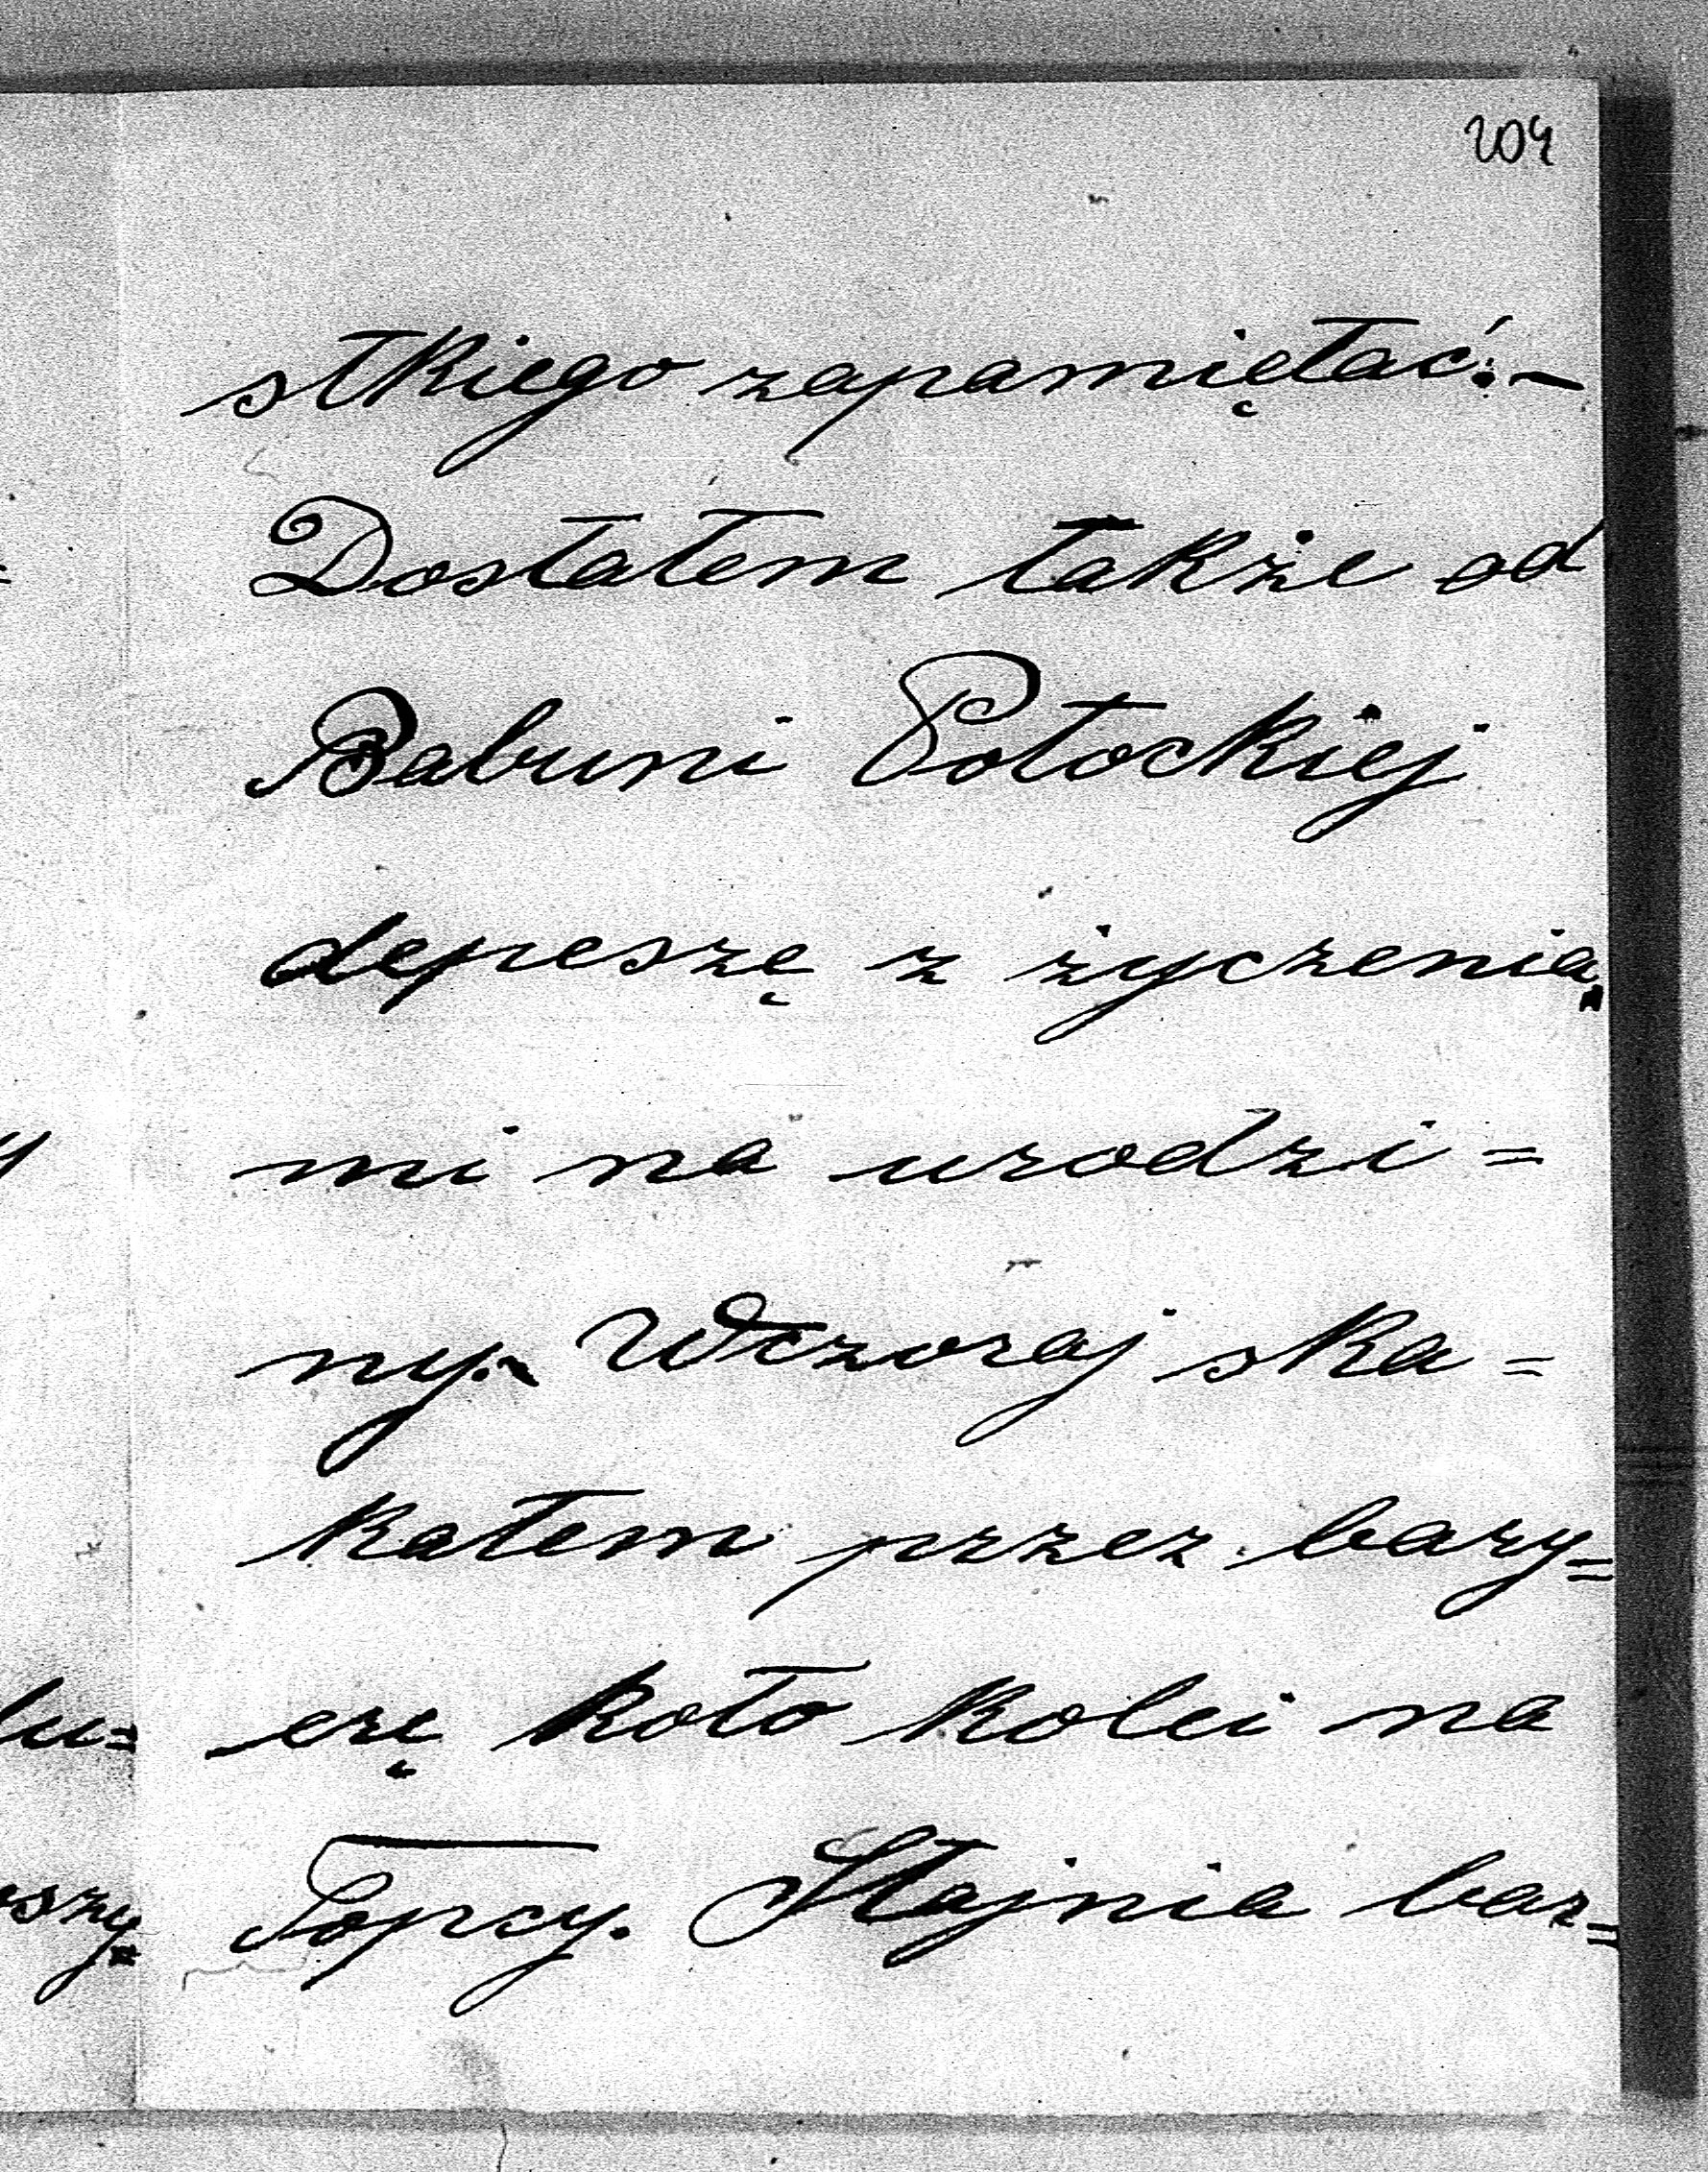 204
stkiego zapamiętać.—
Dostałem także od
Babuni Potockiej
depeszę z życzenia=
mi na urodzi=
ny.— Wczoraj ska=
kałem przez bary=
erę koło kolei na
Topcy. Stajnia bar=